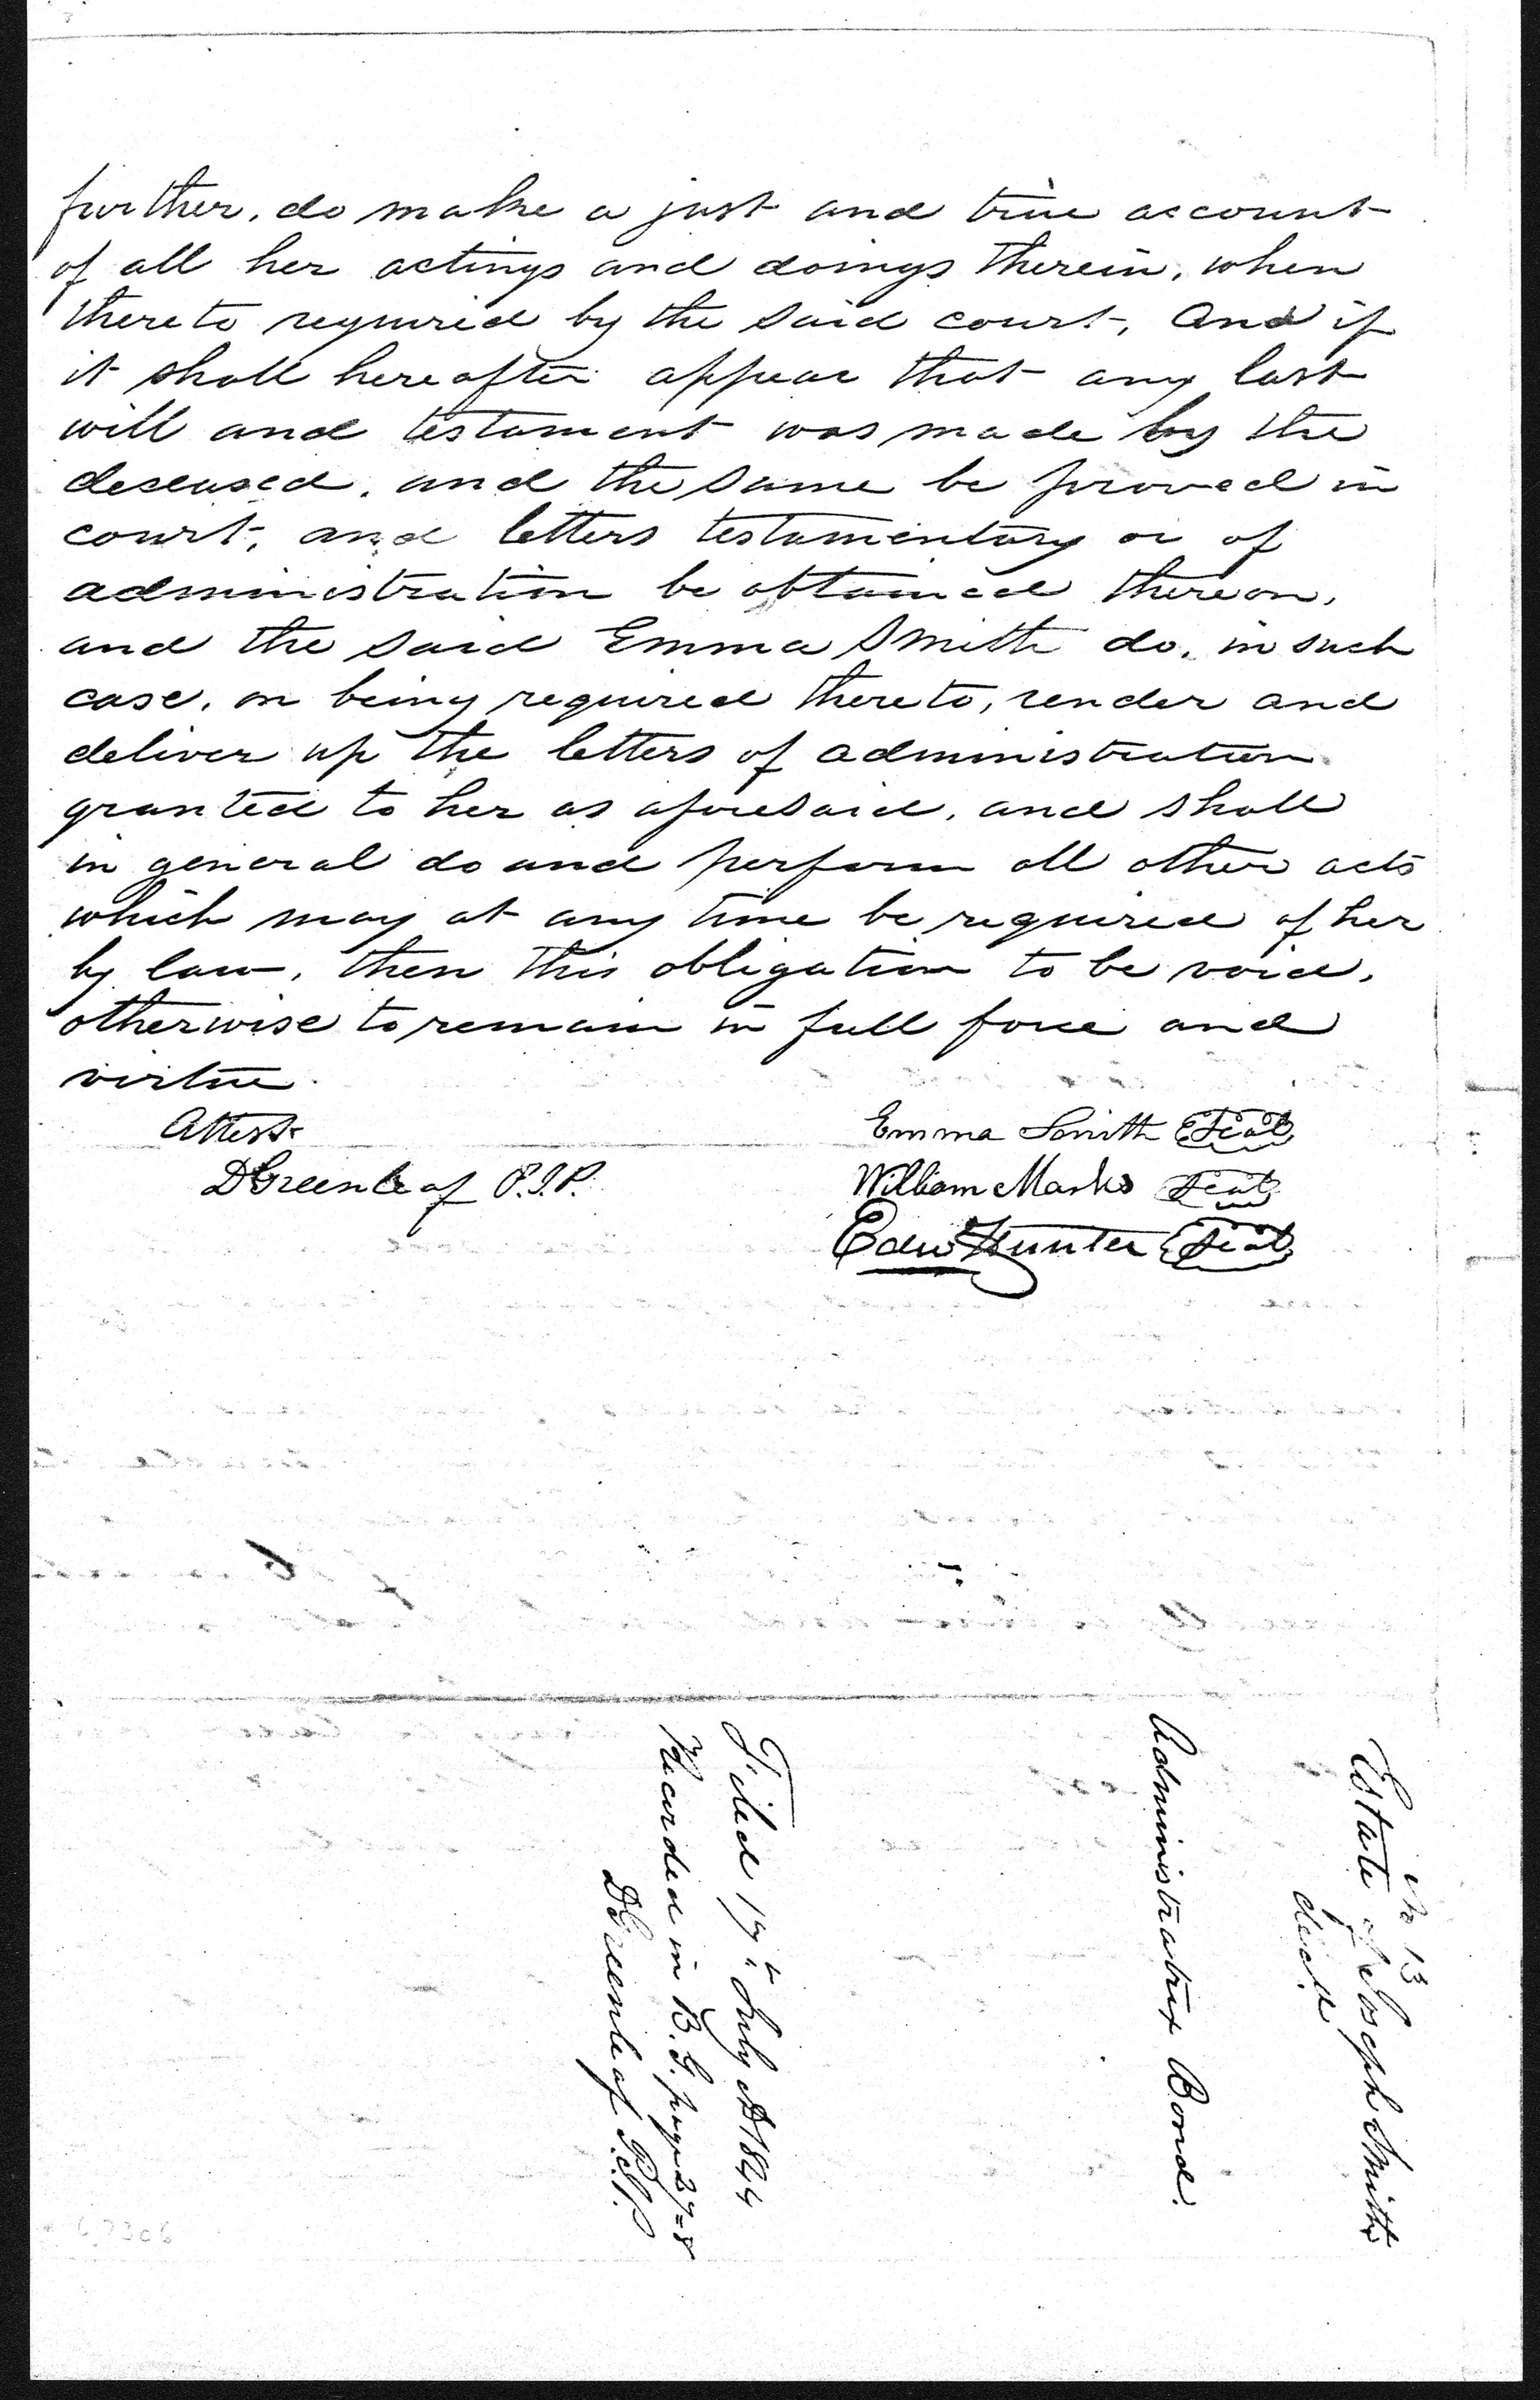 further, do make a just and true account
of all her actings and doings therein, when
thereto required by the said court, And if
it shall hereafter appear that any last
will and testament was made by the
deceased, and the same be proved in
court, and letters testamentary or of
administration be obtained thereon,
and the said Emma Smith do, in such
case, on being required thereto, render and
deliver up the letters of administration
granted to her as aforesaid, and shall
in general do and perform all other acts
which may at any time be required of her
by law, then this obligation to be void,
otherwise to remain in full force and
virtue.
Attest
DGreenleaf P.J.P.
Emma Smith Seal
William Marks Seal
Edw Hunter Seal
No 13
Estate of Joseph Smith
decd
Administratrix Bond.
Filed 17th July AD 1844
Recorded in B. G. page 27=8
DGreenleaf P.J.P.